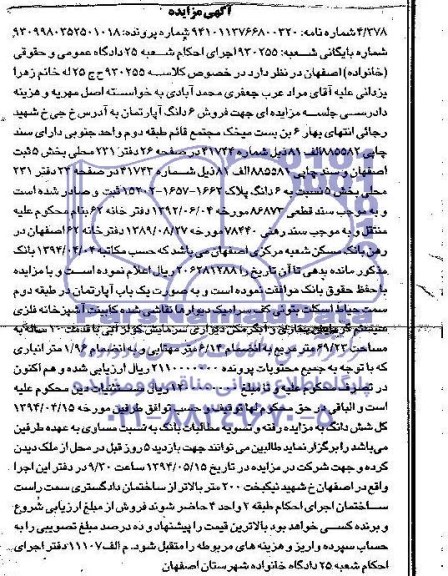 آگهی مزایده
۴/۳۷۸ شماره نامه: ۹۴۱۰۱۱۳۷۶۶۸۰۰۳۲۰ شماره پرونده: ۹۳۰۹۹۸۰۳۵۲۵۰۱۰۱۸
شماره بایگانی شعبه: ۹۳۰۲۵۵ اجرای احکام شعبه ۲۵ دادگاه عمومی و حقوقی
(خانواده) اصفهان در نظر دارد در خصوص کلاسه ۹۳۰۲۵۵ ح ج ۲۵ له خانم زهرا
یزدانی علیه آقای مراد عرب جعفری محمد آبادی به خواسته اصل مهریه و هزینه
دادرسی جلسه مزایده ای جهت فروش ۶ دانگ آپارتمان به آدرس خ جی خ شهید
رجائی انتهای بهار ۶ بن بست میخک مجتمع قائم طبقه دوم واحد جنوبی دارای سند
چاپی ۸۸۵۵۸۲ الف ۸۹ ذیل شماره ۴۱۷۴۴ در صفحه ۲۶ دفتر ۲۳۱ محلی بخش ۵ ثبت
اصفهان و سند چاپی ۸۸۵۵۸۱ الف ۸۱ ذیل شماره ۴۱۷۴۳ در صفحه ۲۳ دفتر ۲۳۱
محلی بخش ۵ نسبت به ۶ دانگ پلاک ۱۶۶۲-۱۶۵۷-۱۵۳۰۲ ثبت و صادر شده است
و به موجب سند قطعی ۸۶۸۷۳ مورخه ۱۳۹۲/۰۶/۰۴ دفتر خانه ۶۲ بنام محکوم علیه
منتقل و به موجب سند رهنی ۷۸۴۴۰ مورخه ۱۳۸۹/۰۸/۲۷ دفترخانه ۶۲ اصفهان در
رهن بانک مسکن شعبه مرکزی اصفهان می باشد که حسب مکاتبه ۱۳۹۴/۰۲/۰۴ بانک
مذکور مانده بدهی تا آن تاریخ را ۲۰۶۲۸۱۲۸۸ ریال اعلام نموده است و با مزایده
با حفظ حقوق بانک موافقت نموده است و به صورت یک باب آپارتمان در طبقه دوم
سمت حیاط اسکلت بتونی کف سرامیک دیوارها نقاشی شده کابینت آشپزخانه فلزی
آبگرمکن دیواری سرمایش کولر آبی با قدمت ۱۰ ساله به
مساحت ۶۹/۲۳ متر مربع به انضمام ۶/۱۴ متر مهتابی و به انضمام ۱/۹۶ متر انباری
که با توجه به جمیع محتویات پرونده ۲۱۱۰۰۰۰۰۰۰ ریال ارزیابی شده و هم اکنون
در تصرف محکوم علیه و از مبلغ مستثنیات دین محکوم علیه
است و الباقی در حق محکوم لها توقیف و حسب توافق طرفین مورخه ۱۳۹۴/۰۴/۱۵
کل شش دانگ به مزایده رفته و تسویه مطالبات بانک به نسبت مساوی به عهده طرفین
می باشد را برگزار نماید طالبین می توانند جهت بازدید ۵ روز قبل در محل از ملک دیدن
کرده و جهت شرکت در مزایده در تاریخ ۱۳۹۴/۰۵/۱۵ ساعت ۹/۳۰ در دفتر این اجرا
واقع در اصفهان خ شهید نیکبخت ۲۰۰ متر بالاتر از ساختمان دادگستری سمت راست
ساختمان اجرای احکام طبقه ۲ واحد ۴ حاضر شوند فروش از مبلغ ارزیابی شروع و
و برنده کسی خواهد بود بالاترین قیمت را پیشنهاد و ده درصد مبلغ تصویبی را به
حساب سپرده واریز و هزینه های مربوطه را متقبل شود. م الف ۱۱۱۰۷ دفتر اجرای
احکام شعبه ۲۵ دادگاه خانواده شهرستان اصفهان
پایگاه اطلاع رسانی مناقصه و مزایده